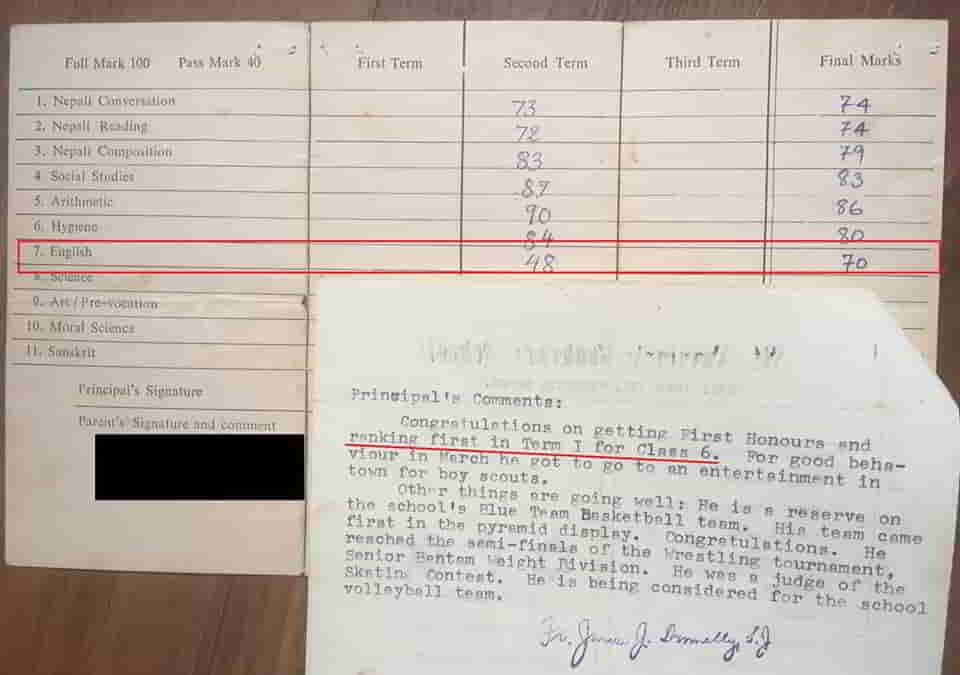 Full Mark 100 Pass Mark 40 First Term Second Term Third Term Final Marks
1. Nepali Conversation 73 74
2. Nepali Reading 72 74
3. Nepali Composition 83 79
4 Social Studies 87 83
5. Arithmetic 90 86
6. Hygiene 84 80
7. English 48 70
8. Science
9. Art/Pre-vocation
10. Moral Science
11. Sanskrit
Principal's Signature
Parent's Signature and comment
Principal's Comments:
Congratulations on getting First Honours and
ranking first in Term I for Class 6. For good beha-
viour in March he got to go to an entertainment in
town for boy scouts.
Other things are going well: He is a reserve on
the school's Blue Team Basketball team. His team came
first in the pyramid display. Congratulations. He
reached the semi-finals of the Wrestling tournament,
Senior Bantam Weight Division. He was a judge of the
Skating Contest. He is being considered for the school
volleyball team.
Fr. James J. Donnelly, S.J